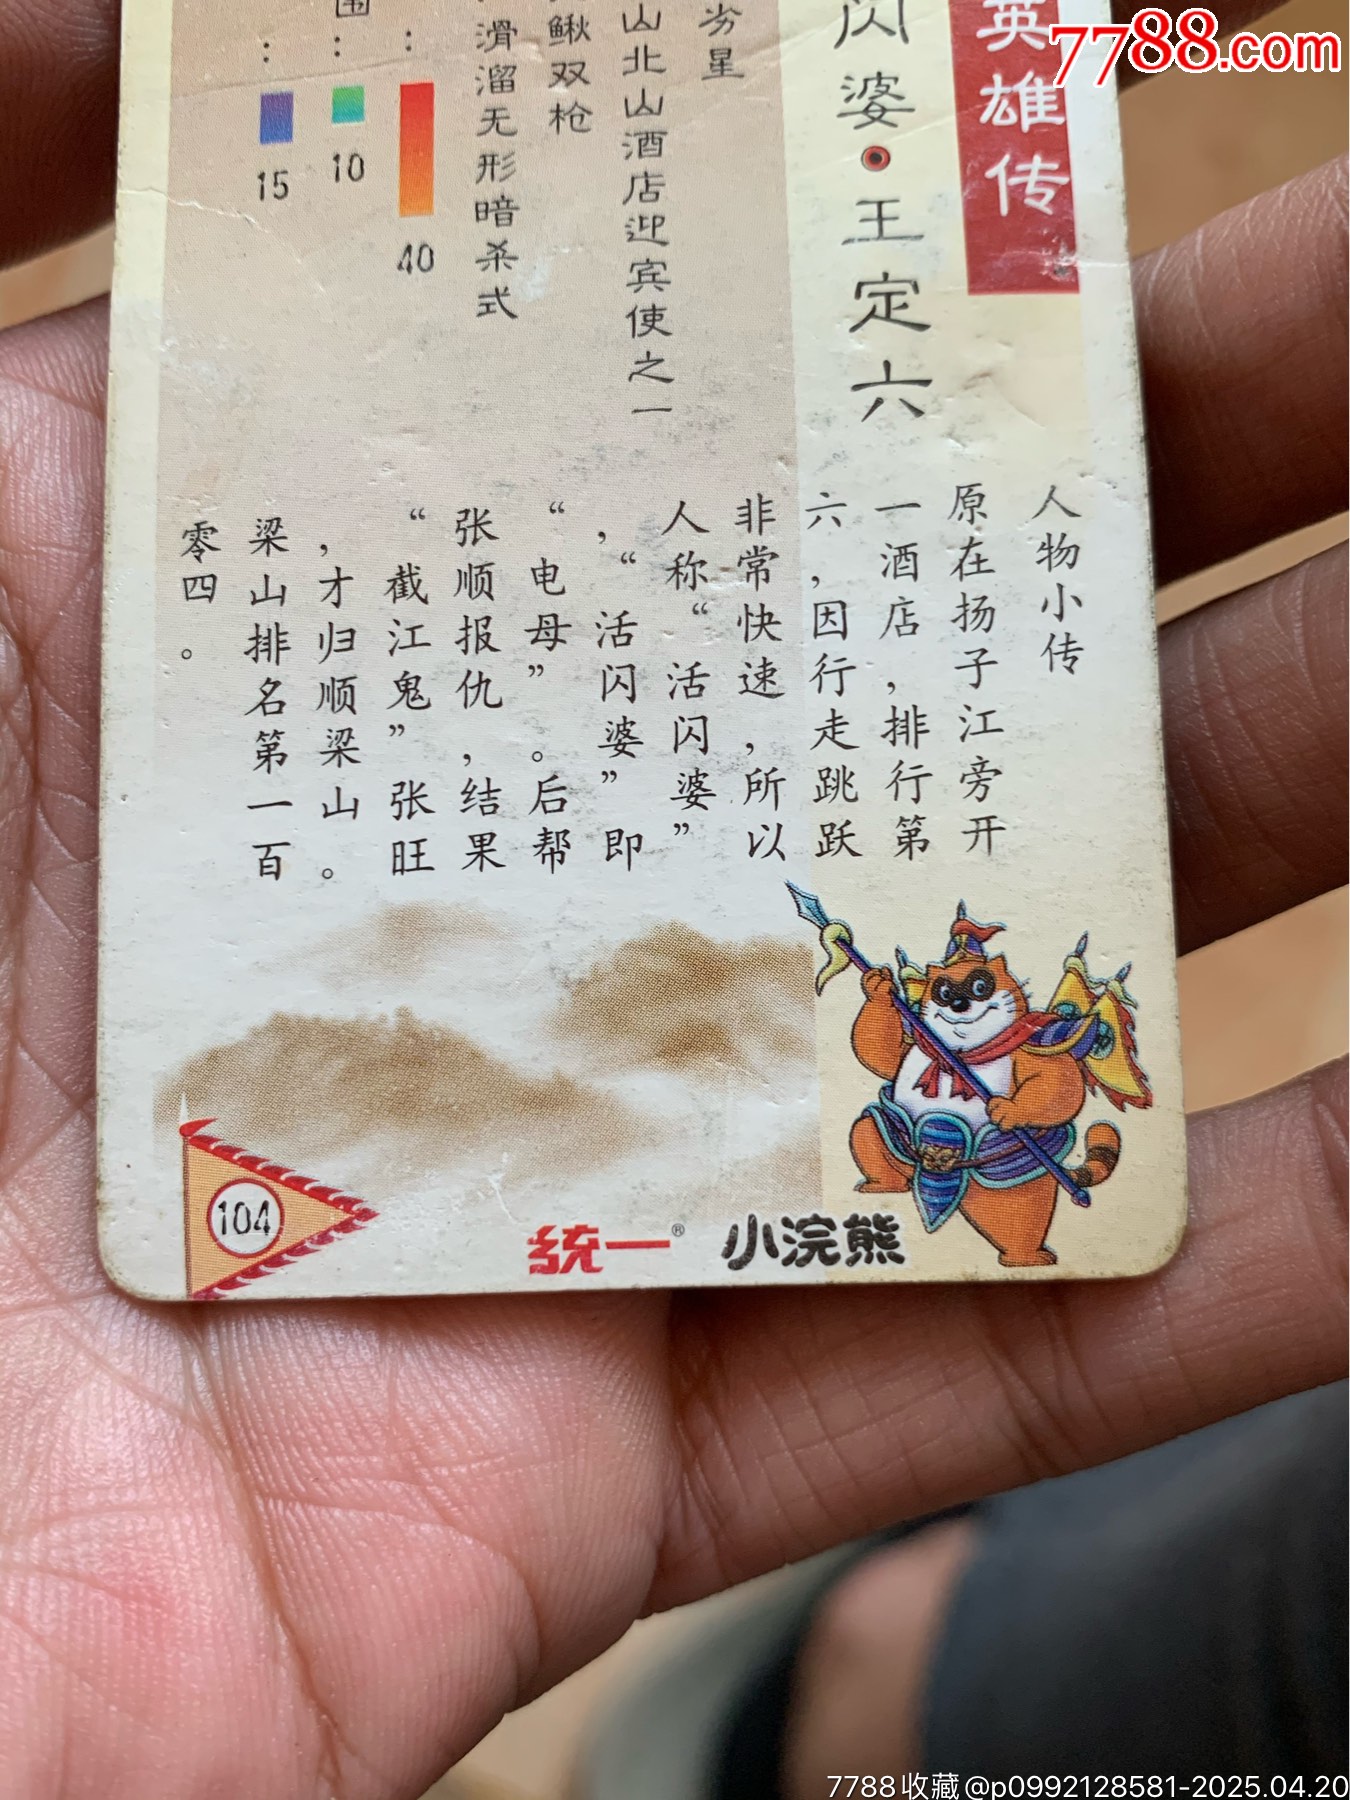 7788.com
英雄传
闪婆·王定六
劣星
山北山酒店迎宾使之一
鳅双枪
滑溜无形暗杀式
：
40
围：
10
：
15
人物小传
原在扬子江旁开
一酒店，排行第
六，因行走跳跃
非常快速，所以
人称“活闪婆”
，“活闪婆”即
“电母”。后帮
张顺报仇，结果
“截江鬼”张旺
，才归顺梁山。
梁山排名第一百
零四。
104
统一® 小浣熊
7788收藏@p0992128581-2025.04.20